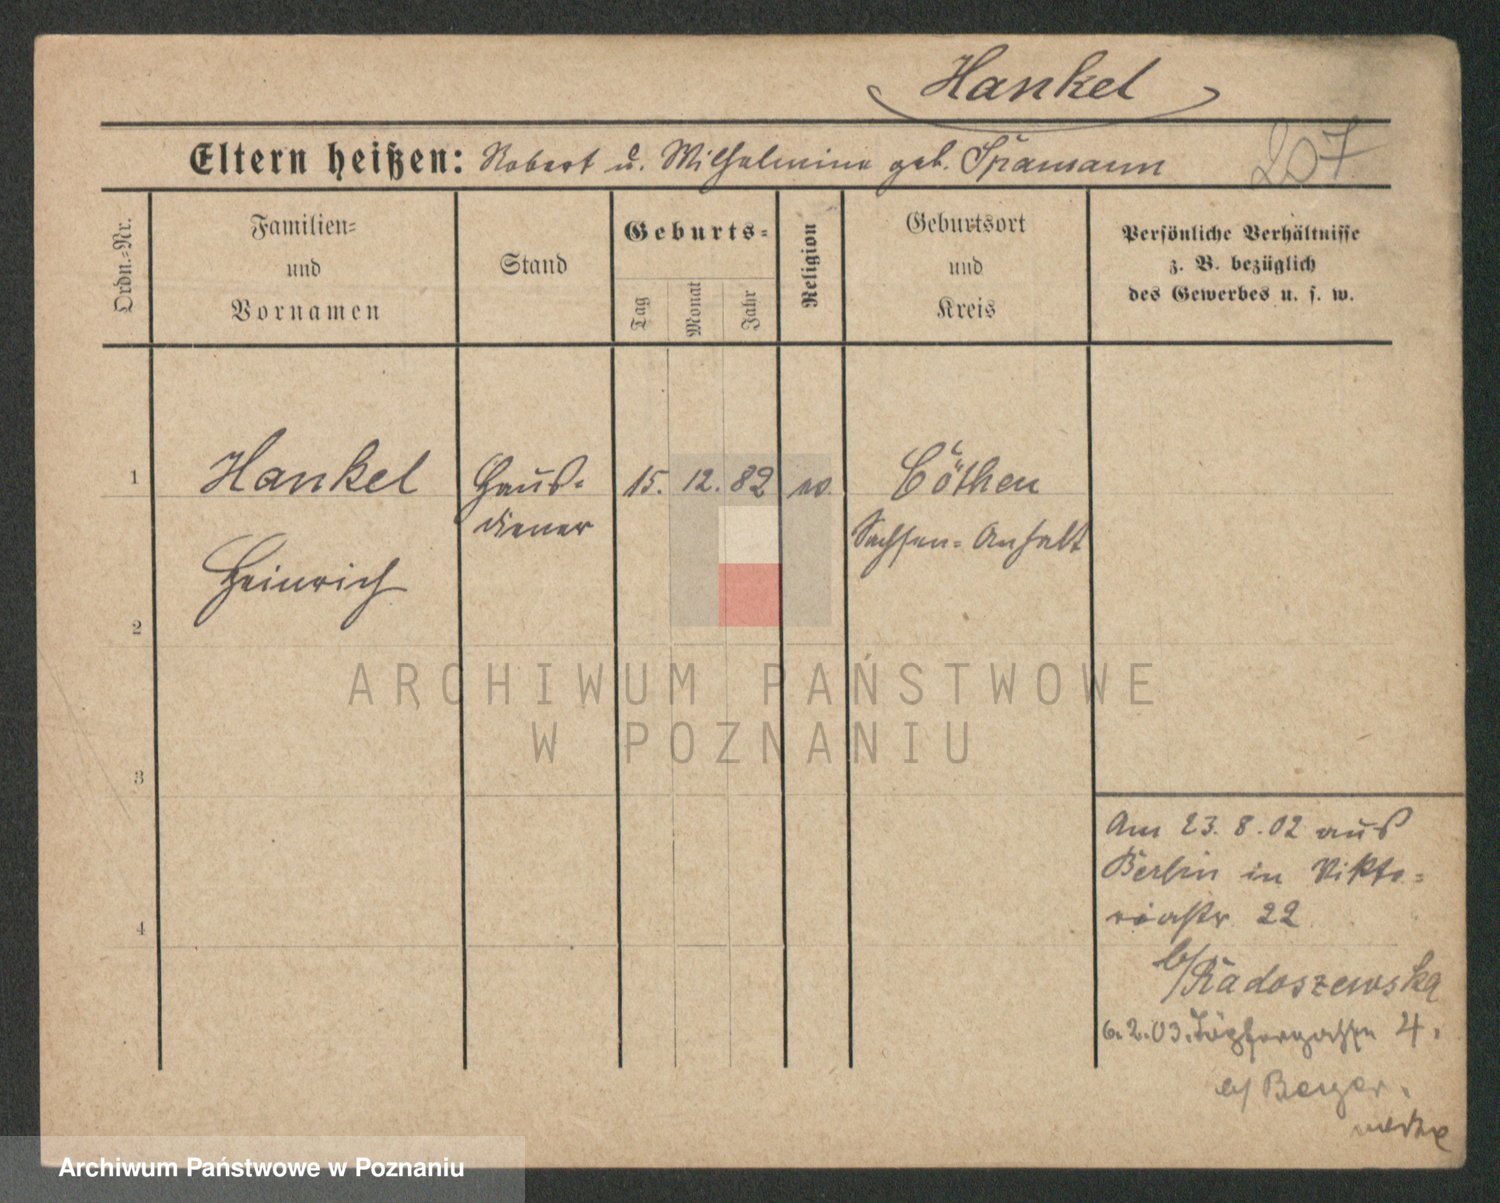 Hankel
Eltern heißen: Robert u. Wilhelmine geb. Spamann
207
Ordn.-Nr.
Familien- und Vornamen
Stand
Geburts-
Tag
Monat
Jahr
Religion
Geburtsort und Kreis
Persönliche Verhältnisse
z. B. bezüglich
des Gewerbes u. s. w.
1
Hankel Haus- 15. 12. 82 ev. Cöthen
diener Sachsen-Anhalt
Heinrich
2
3
4
ARCHIWUM PAŃSTWOWE
W POZNANIU
Am 23. 8. 02 aus
Berlin in Vikto-
riastr. 22
b/Radoszewska
6.2.03. Töpfergasse 4.
b/ Berger.
Archiwum Państwowe w Poznaniu